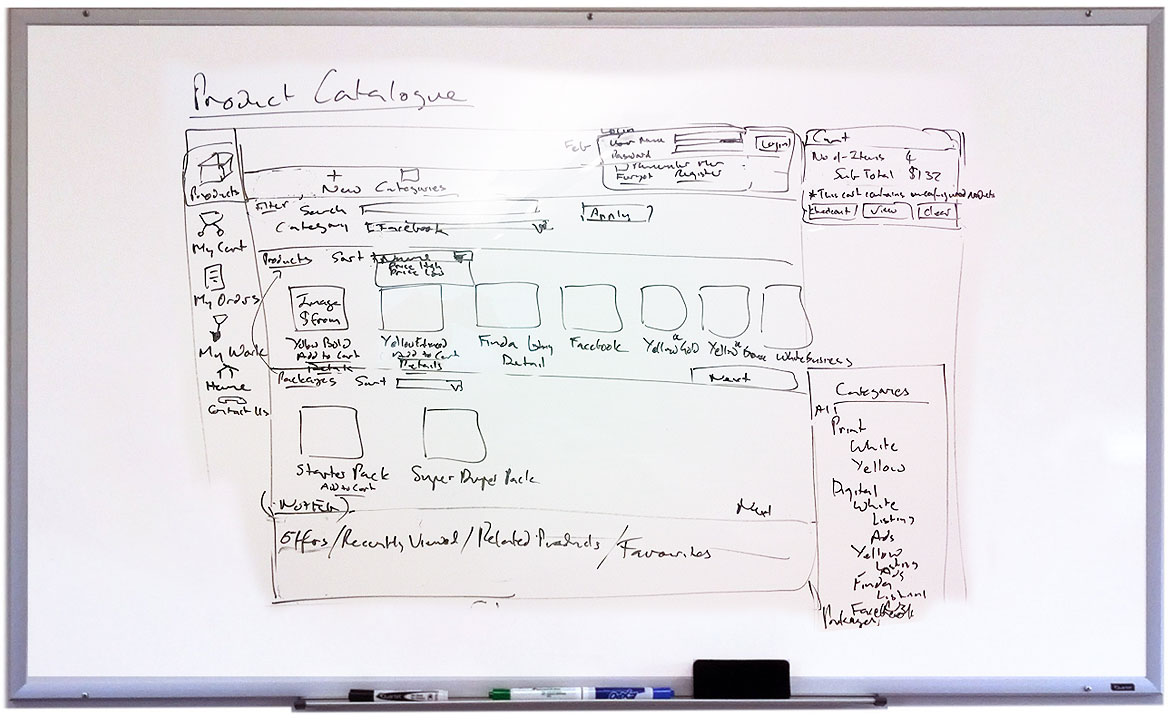 Product Catalogue
Login
User Name
Password
Remember Me
Forgot Register
Login
Cart
No of Items 4
Sub Total $132
*This cart contains unconfigured products
Checkout View Clear
Products
My Cart
My Orders
My Work
Home
Contact Us
+
New Categories
Filter Search
Apply
Category Facebook
Products Sort
Price High
Price Low
Image
$from
Yellow Bold
Add to Cart
Details
Add to Cart
Details
Finda Listing
Detail
Facebook
Yellow Gold
Yellow
White Business
Next
Packages Sort
Starter Pack
Add to Cart
Super Duper Pack
Next
Offers/Recently Viewed/Related Products/Favourites
Categories
All
Print
White
Yellow
Digital
White
Listing
Ads
Yellow
Listing
Ads
Finda
Facebook
Packages